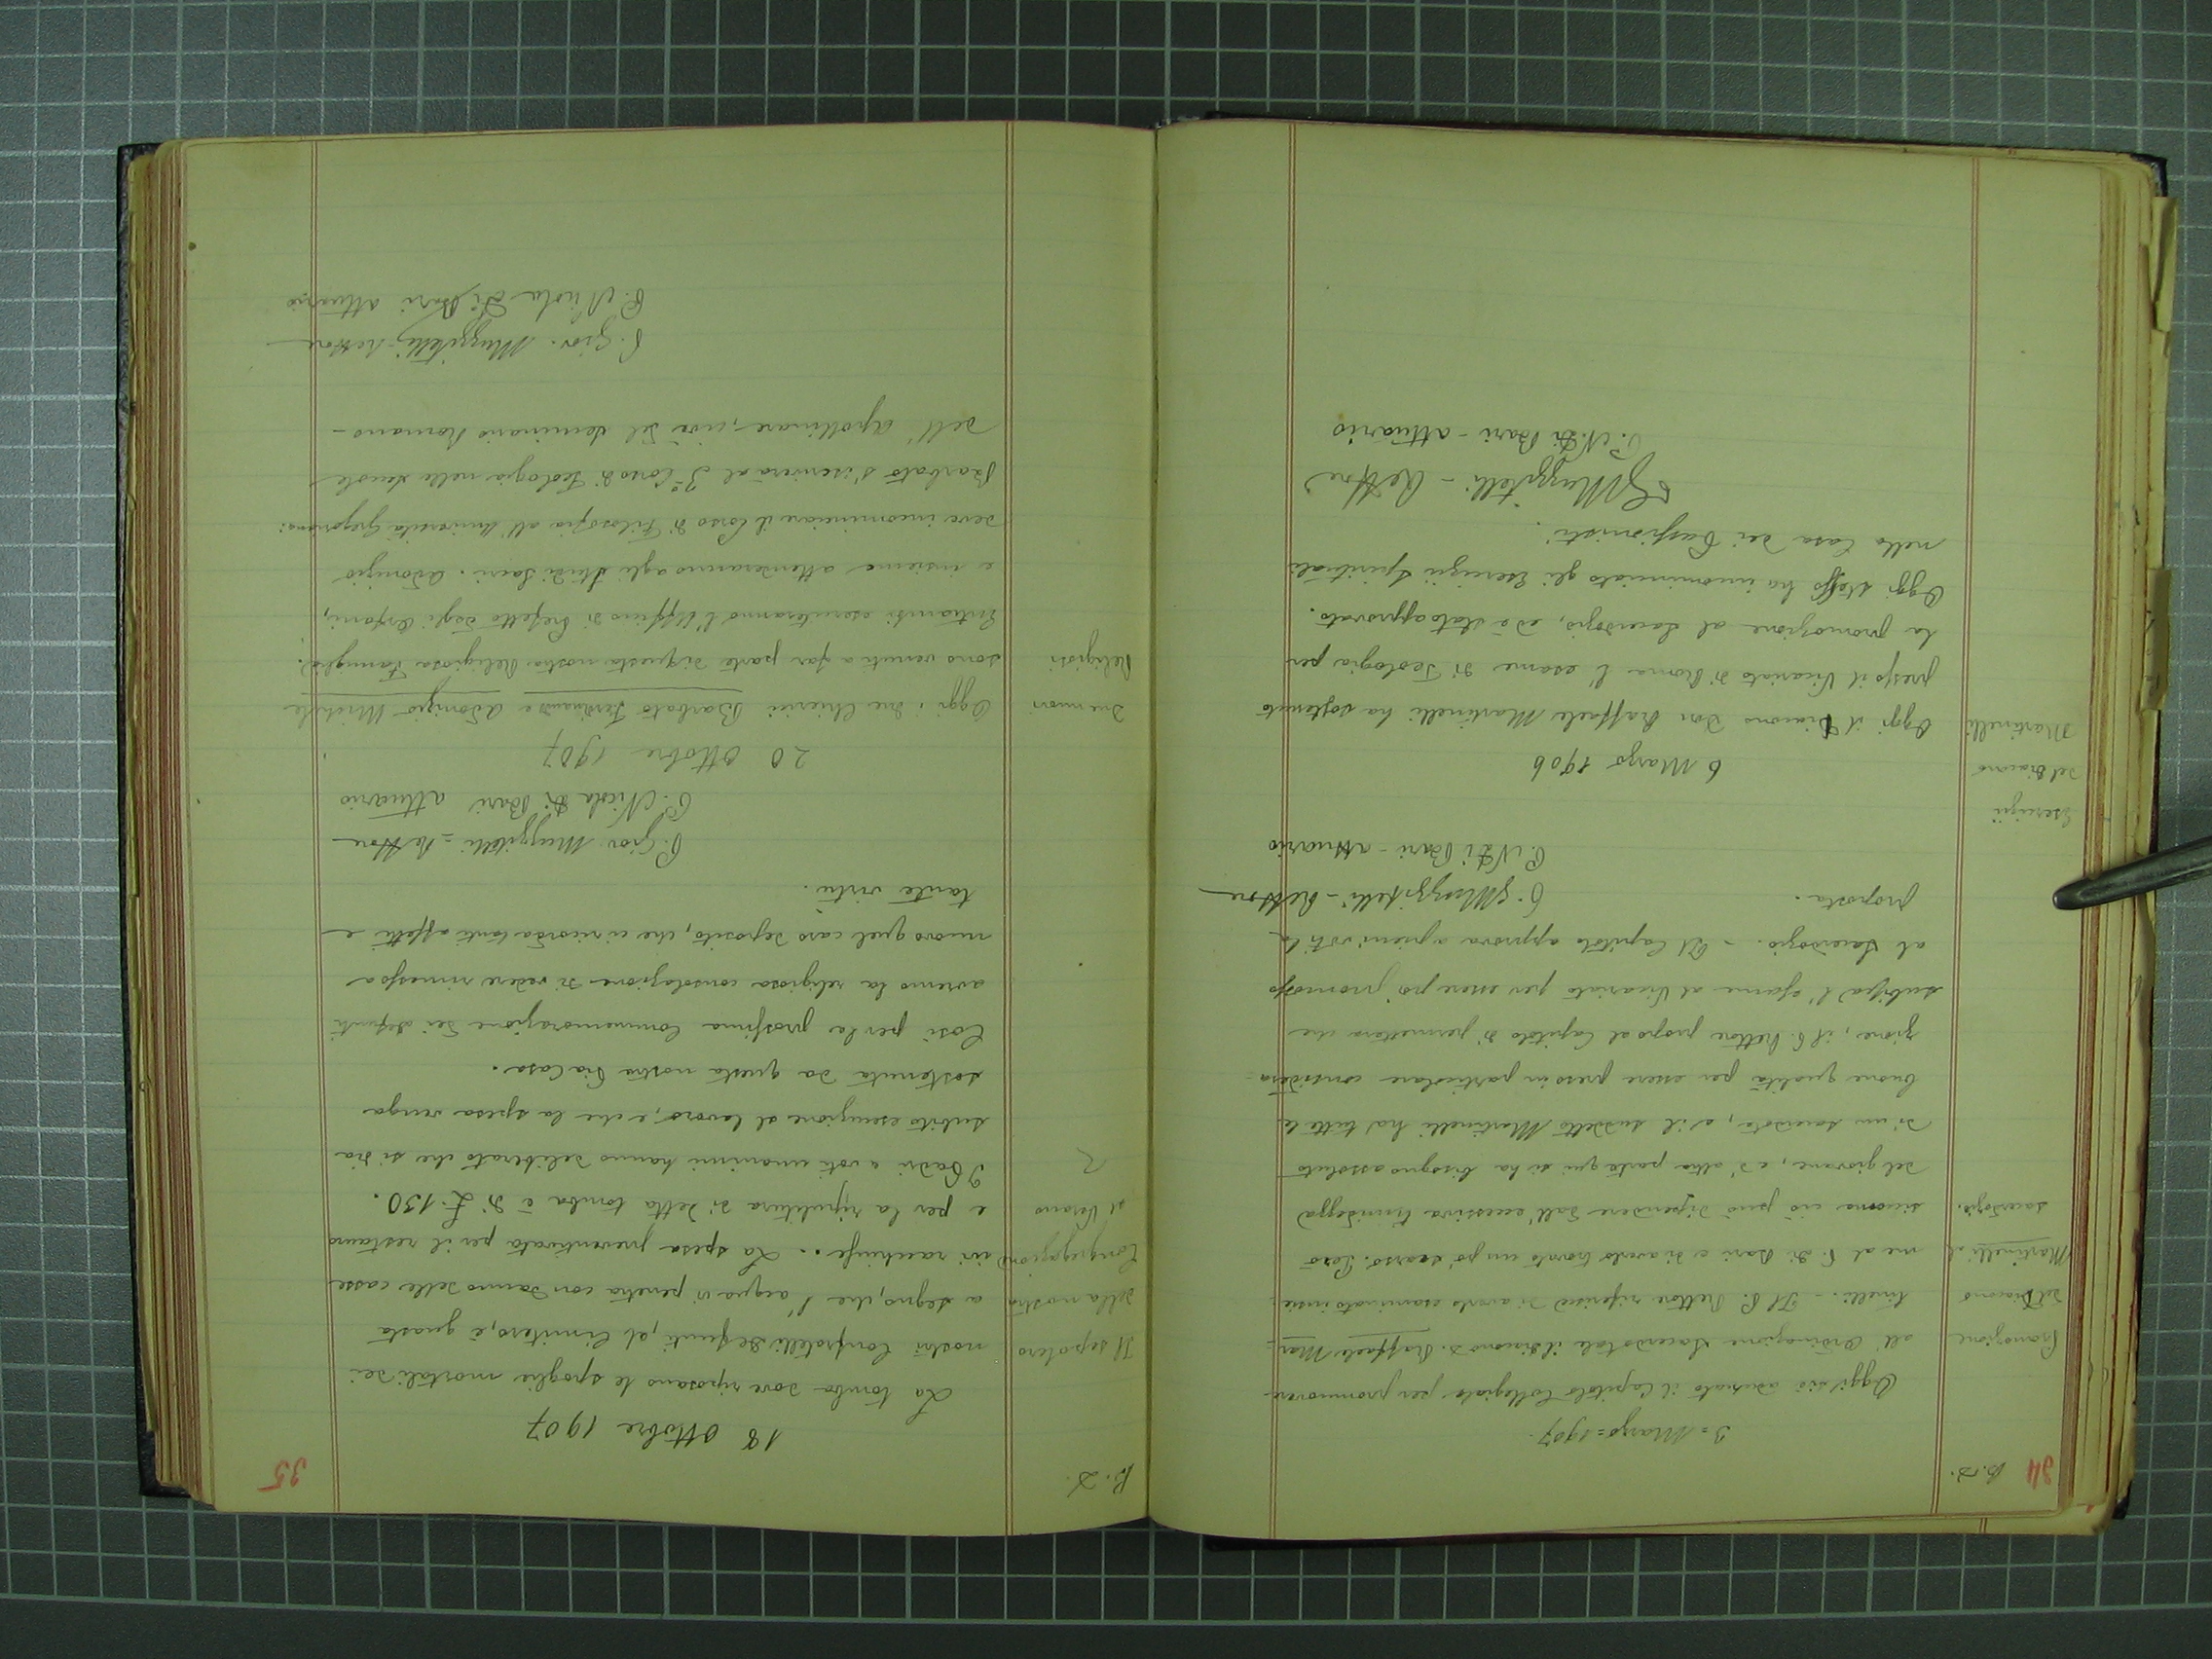 34
B. D.
3 = Marzo = 1907.
Promozione
del Diacono
Martinelli al
sacerdozio.
Oggi si è adunato il Capitolo Collegiale per promuovere
all' Ordinazione Sacerdotale il diacono D. Raffaele Mar-
tinelli. - Il P. Rettore riferisce di averlo esaminato insie-
me al P. Di Bari e di averlo trovato un po' scarso. Però
siccome ciò può dipendere dall' eccessiva timidezza
del giovane, e d' altra parte qui si ha bisogno assoluto
di un sacerdote, e il suddetto Martinelli ha tutte le
buone qualità per essere preso in particolare considera-
zione, il P. Rettore propo al Capitolo di permettere che
subisca l' esame al Vicariato per essere poi promosso
al Sacerdozio. - Il Capitolo approva a pieni voti la
proposta.
P. G Muzzitelli - Rettore
P. N Di Bari - attuario
6 Marzo 1906
Esercizii
del diacono
Martinelli
Oggi il Diacono Don Raffaele Martinelli ha sostenuto
presso il Vicariato di Roma l' esame di Teologia per
la promozione al Sacerdozio, ed è stato approvato.
Oggi stesso ha incominciato gli Esercizii Spirituali
nella Casa dei Passionisti.
P G Muzzitelli - Rettore
P. N. Di Bari - attuario
B. D.
35
18 Ottobre 1907
Il sepolcro
della nostra
Congregazione
al Verano
La tomba dove riposano le spoglie mortali dei
nostri Confratelli defunti, al Cimitero, è guasta
a segno, che l' acqua vi penetra con danno delle casse
ivi racchiuse.. La spesa preventivata per il restauro
e per la ripulitura di detta tomba è di L. 130.
I Padri a voti unanimi hanno deliberato che si dia
subito esecuzione al lavoro, e che la spesa venga
sostenuta da questa nostra Pia Casa.
Così per la prossima Commemorazione dei defunti
avremo la religiosa consolazione di vedere rimessa a
nuovo quel caro deposito, che ci ricorda tanti affetti e
tante virtù.
P. Giov. Muzzitelli = Rettore
P. Nicola Di Bari attuario
20 Ottobre 1907
Due nuovi
Religiosi
Oggi i due Chierici Barbato Ferdinando e Adonizio Michele
sono venuti a far parte di questa nostra Religiosa Famiglia.
Entrambi eserciteranno l' Ufficio di Prefetto degli Orfani,
e insieme attenderanno agli Studi Sacri. Adonizio
deve incominciare il Corso di Filosofia all' Università Gregoriana:
Barbato s' iscriverà al 3º Corso di Teologia nelle scuole
dell' Apollinare, cioè del Seminario Romano -
P. Giov. Muzzitelli - Rettore
P. Nicola Di Bari attuario